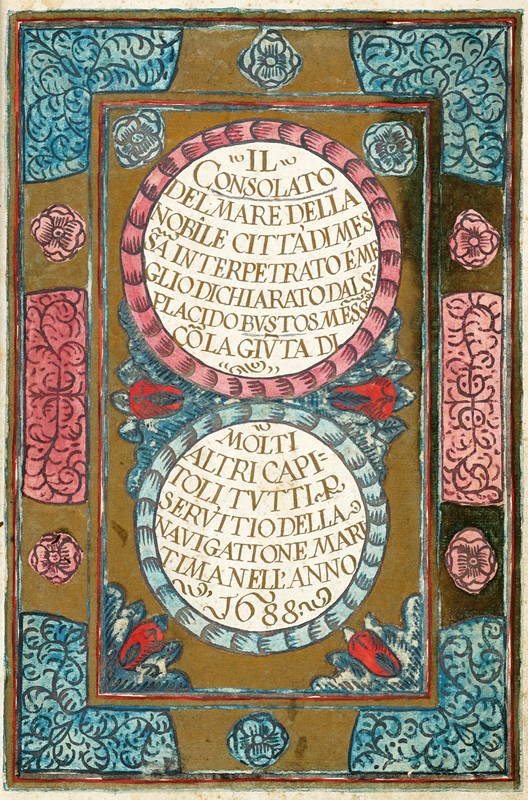 IL
CONSOLATO
DEL MARE DELLA
NOBILE CITTÀ DI MES
SÃ INTERPETRATO E ME
GLIO DICHIARATO DAL Sʳ
PLACIDO BVSTOS MESSS
CÕ LA GIVTA DI
MOLTI
ALTRI CAPI-
TOLI TVTTI P
SERVITIO DELLA
NAVIGATIONE MARI
TIMA NELL'ANNO
1688